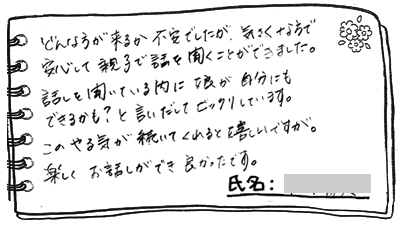 どんな方が来るか不安でしたが、気さくな方で
安心して親子で話を聞くことができました。
話しを聞いている内に娘が自分にも
できるかも？と言いだしてビックリしています。
このやる気が続いてくれると嬉しいですが。
楽しくお話しができ良かったです。
氏名：